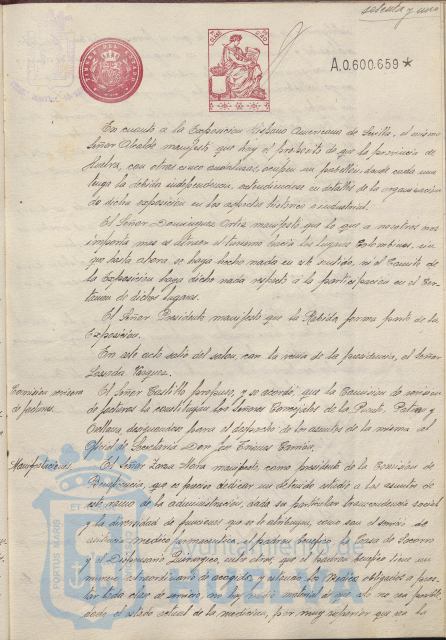 setenta y uno
TIMBRE DEL ESTADO
A.0.600.659*
En cuanto a la Exposicion Hispano Americana de Sevilla, el mismo
Señor Alcalde manifestó que hay el propósito de que la provincia de
Huelva, con otras cinco andaluzas, ocupen un pabellón, donde cada una
tenga la debida independencia, extendiendose en detalle de la organización
de dicha exposición en los aspectos histórico e industrial.
El Señor Dominguez Ortiz manifestó que lo que a nosotros mas
importa mas es atraer el turismo hacia los lugares Colombinos, sin
que hasta ahora se haya hecho nada en ese sentido, ni el Comité de
la Exposición haya dicho nada respecto a la participación en el Cer-
tamen de dichos lugares.
El Señor Presidente manifestó que la Rabida forma parte de la
Exposición.
En este acto salió del salon, con la venia de la presidencia, el Señor
Losada Vazquez.
Comisión revisora
de facturas.
El Señor Castillo propuso, y se acordó, que la Comisión de revisión
de facturas la constituyan los Señores Concejales de la Pinta, Patiño y
Orellana, designandose para el despacho de los asuntos de la misma al
Oficial de Secretaría Don José
Manifestaciones.
El Señor manifestó, como presidente de la Comisión de
Beneficencia, que es preciso dedicar un detenido estudio a los asuntos de
este ramo de la administración, dada su particular trascendencia social
y la diversidad de funciones que se le atribuyen, como son el servicio de
asistencia medico farmaceutica, el padron benefico, la Casa de Socorro
y el Dispensario Quirurgico, entre otros, que el padron benefico tiene un
numero extraordinario de acogidos, y estando los Medicos obligados a pres-
tar toda clase de servicios, no hay medio material de que ello sea posible,
dado el estado actual de la medicina, por muy superior que sea la
PORTUS MARIS ET
Ayuntamiento de